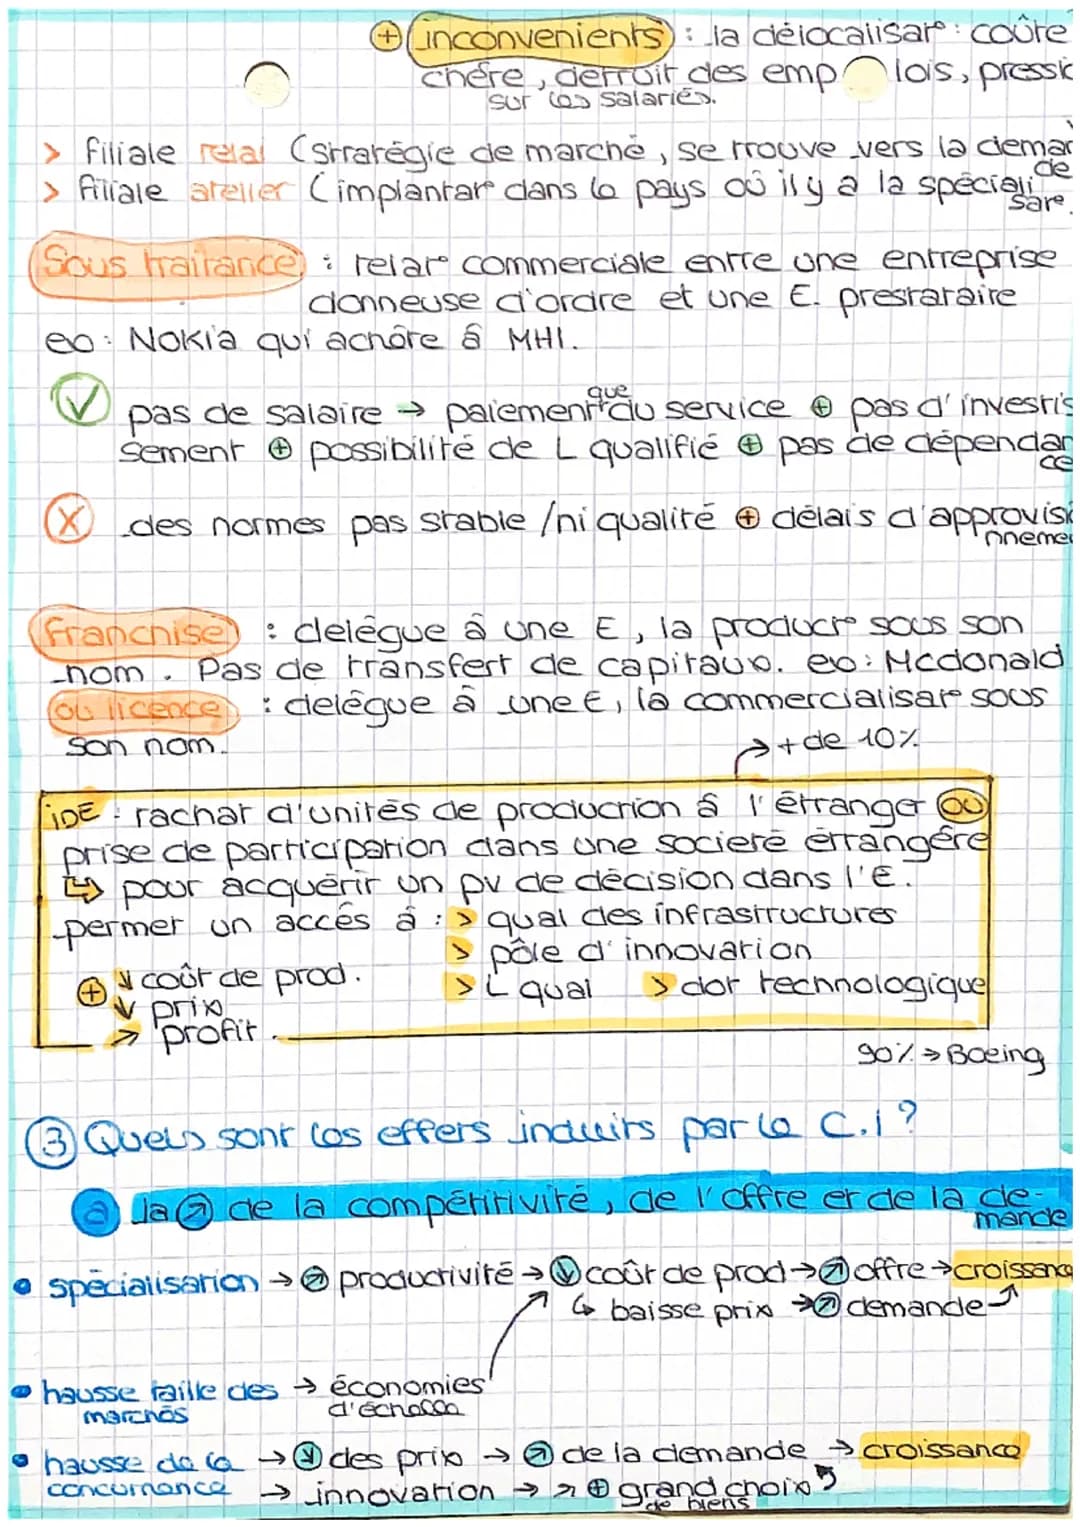 ⊕ inconvenients : la délocalisat° : coûte
chère, detruit des emplois, pressio
sur les salariés.
> filiale relai (stratégie de marché, se trouve vers la deman
de
> filiale atelier (implantat° dans le pays où il y a la spéciali
sat°.
Sous traitance : relat° commerciale entre une entreprise
donneuse d'ordre et une E. prestataire
ex : Nokia qui achète à MHI.
que
pas de salaire → paiement du service ⊕ pas d'investis
sement ⊕ possibilité de L qualifié ⊕ pas de dépendan
ce
X des normes pas stable / ni qualité ⊕ délais d'approvisio
nnemen
franchise : delégue à une E, la product° sous son
nom. Pas de transfert de capitaux. ex : Mcdonald
ou licence : delégue à une E, la commercialisat° sous
son nom.
→ + de 10%
iDE : rachat d'unités de production à l'étranger ou
prise de participation dans une societé étrangère
↳ pour acquérir un pv de décision dans l'E.
permet un accès à : > qual des infrastructures
> pôle d'innovation
⊕ ↘ coût de prod. > L qual > dot technologique
↘ prix
↗ profit.
90% → Boeing
③ Quels sont les effets induits par le C.I ?
a la ↗ de la compétitivité, de l'offre et de la de-
mande
• spécialisation → ↗ productivité → ↘ coût de prod → ↗ offre → croissance
↳ baisse prix → ↗ demande
• hausse taille des → économies
marchés d'échelle
• hausse de la → ↘ des prix → ↗ de la demande → croissance
concurrence → innovation → ↗ ⊕ grand choix
de biens